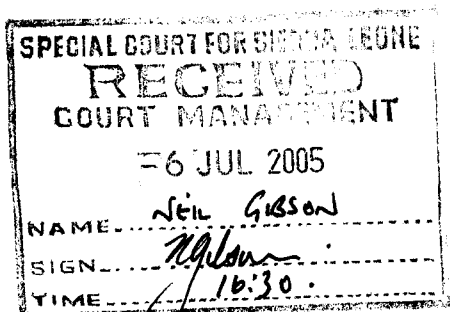 SPECIAL COURT FOR SIERRA LEONE
RECEIVED
COURT MANAGEMENT
6 JUL 2005
NAME NEIL GIBSON
SIGN NGibson
TIME 16:30.